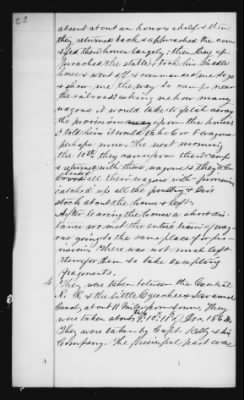 22
absent about an hour & a half & then
they returned back & approached the corn
& fed their horses largely; then they ap-
proached the stable & took his saddle
horse & went off & commanded me to go
& show me the way to camp near
the railroad asking me how many
wagons it would take to fetch away
the provisions upon the house
& I told him it would take 6 or 7 wagons
perhaps more. The next morning
the 10th, they came upon their camp
& returned with three wagons & they
loaded all their wagons with provisions
catched up all the poultry & live
stock about the house & left.
After leaving the house a short dis-
tance we met the entire train of wag-
ons going to the same place for pro-
visions. There was not much left
after them to take excepting
fragments.
They were taken between the Central
R. R. & the Little Ogeechee & Savannah
Canal, at about 11 miles from town. They
were taken about 9, 10, 11th, Dec. 1864.
They were taken by Capt. Kelly & his
Company. The principal part was